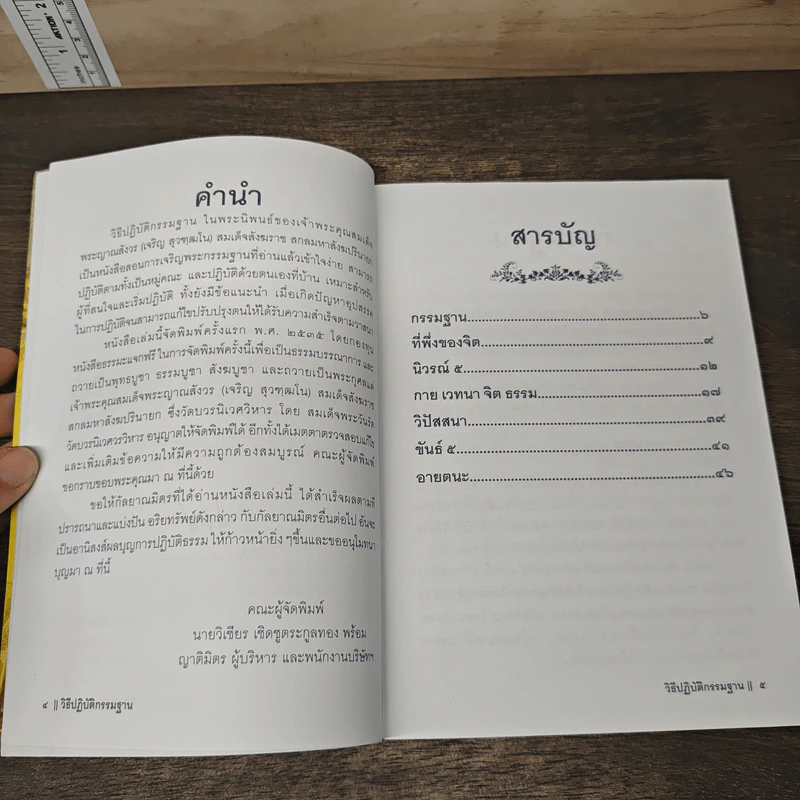 คำนำ
วิธีปฏิบัติกรรมฐาน ในพระนิพนธ์ของเจ้าพระคุณสมเด็จ
พระญาณสังวร (เจริญ สุวฑฺฒโน) สมเด็จสังฆราช สกลมหาสังฆปรินายก
เป็นหนังสือสอนการเจริญพระกรรมฐานที่อ่านแล้วเข้าใจง่าย สามารถ
ปฏิบัติตามทั้งเป็นหมู่คณะ และปฏิบัติด้วยตนเองที่บ้าน เหมาะสำหรับ
ผู้ที่สนใจและเริ่มปฏิบัติ ทั้งยังมีข้อแนะนำ เมื่อเกิดปัญหาอุปสรรค
ในการปฏิบัติจนสามารถแก้ไขปรับปรุงตนให้ได้รับความสำเร็จตามวาสนา
หนังสือเล่มนี้จัดพิมพ์ครั้งแรก พ.ศ. ๒๕๓๕ โดยกองทุน
หนังสือธรรมะแจกฟรี ในการจัดพิมพ์ครั้งนี้เพื่อเป็นธรรมบรรณาการ และ
ถวายเป็นพุทธบูชา ธรรมบูชา สังฆบูชา และถวายเป็นพระกุศลแด่
เจ้าพระคุณสมเด็จพระญาณสังวร (เจริญ สุวฑฺฒโน) สมเด็จสังฆราช
สกลมหาสังฆปรินายก ซึ่งวัดบวรนิเวศวิหาร โดย สมเด็จพระวันรัต
วัดบวรนิเวศวรวิหาร อนุญาตให้จัดพิมพ์ได้ อีกทั้งได้เมตตาตรวจสอบแก้ไข
และเพิ่มเติมข้อความให้มีความถูกต้องสมบูรณ์ คณะผู้จัดพิมพ์
ขอกราบขอบพระคุณมา ณ ที่นี้ด้วย
ขอให้กัลยาณมิตรที่ได้อ่านหนังสือเล่มนี้ ได้สำเร็จผลตามที่
ปรารถนาและแบ่งปัน อริยทรัพย์ดังกล่าว กับกัลยาณมิตรอื่นต่อไป อันจะ
เป็นอานิสงส์ผลบุญการปฏิบัติธรรม ให้ก้าวหน้ายิ่ง ๆขึ้นและขออนุโมทนา
บุญมา ณ ที่นี้
คณะผู้จัดพิมพ์
นายวิเชียร เชิดชูตระกูลทอง พร้อม
ญาติมิตร ผู้บริหาร และพนักงานบริษัทฯ
๔ || วิธีปฏิบัติกรรมฐาน
สารบัญ
กรรมฐาน...๖
ที่พึ่งของจิต...๙
นิวรณ์ ๕...๑๒
กาย เวทนา จิต ธรรม...๑๗
วิปัสสนา...๓๙
ขันธ์ ๕...๔๑
อายตนะ...๔๖
วิธีปฏิบัติกรรมฐาน || ๕